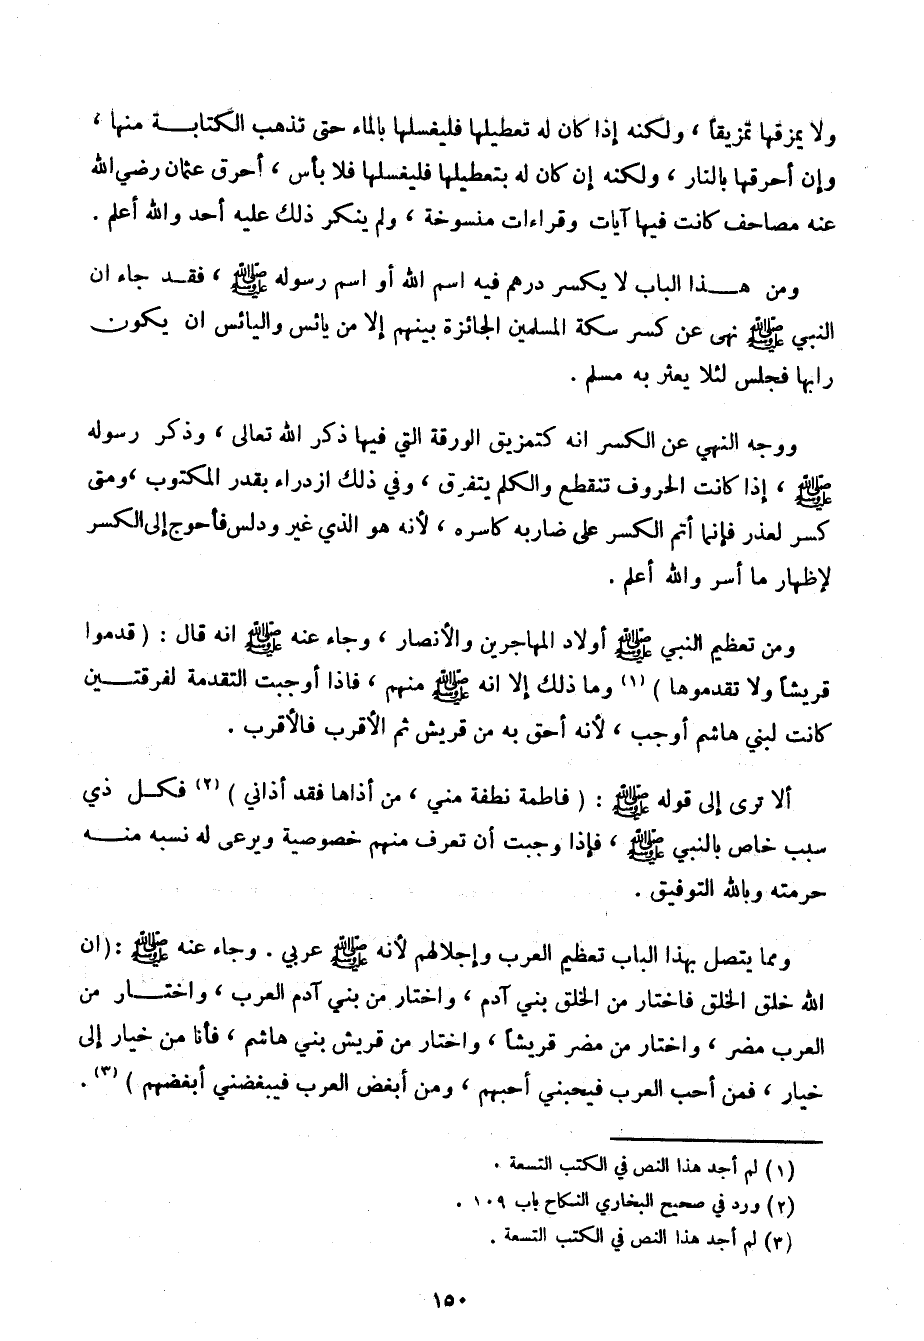 ولا يمزقها تمزيقاً ، ولكنه إذا كان له تعطيلها فليغسلها بالماء حتى تذهب الكتابة منها ،
وإن أحرقها بالنار ، ولكنه إن كان له بتعطيلها فليغسلها فلا بأس ، أحرق عثمان رضي الله
عنه مصاحف كانت فيها آيات وقراءات منسوخة ، ولم ينكر ذلك عليه أحد والله أعلم .
ومن هذا الباب لا يكسر درهم فيه اسم الله أو اسم رسوله ﷺ ، فقد جاء ان
النبي ﷺ نهى عن كسر سكة المسلمين الجائزة بينهم إلا من يائس واليائس ان يكون
رابها فجلس لئلا يعثر به مسلم .
ووجه النهي عن الكسر انه كتمزيق الورقة التي فيها ذكر الله تعالى ، وذكر رسوله
ﷺ ، إذا كانت الحروف تنقطع والكلم يتفرق ، وفي ذلك ازدراء بقدر المكتوب ، ومتى
كسر لعذر فإنما أتم الكسر على ضاربه كاسره ، لأنه هو الذي غير ودلس فأحوج إلى الكسر
لإظهار ما أسر والله أعلم .
ومن تعظيم النبي ﷺ أولاد المهاجرين والأنصار ، وجاء عنه ﷺ انه قال : ( قدموا
قريشاً ولا تقدموها ) (١) وما ذلك إلا انه ﷺ منهم ، فاذا أوجبت التقدمة لفرقتين
كانت لبني هاشم أوجب ، لأنه أحق به من قريش ثم الأقرب فالأقرب .
ألا ترى إلى قوله ﷺ : ( فاطمة نطفة مني ، من أذاها فقد أذاني ) (٢) فكل ذي
سبب خاص بالنبي ﷺ ، فإذا وجبت أن تعرف منهم خصوصية ويرعى له نسبه منه
حرمته وبالله التوفيق .
ومما يتصل بهذا الباب تعظيم العرب وإجلالهم لأنه ﷺ عربي . وجاء عنه ﷺ : ( ان
الله خلق الخلق فاختار من الخلق بني آدم ، واختار من بني آدم العرب ، واختار من
العرب مضر ، واختار من مضر قريشاً ، واختار من قريش بني هاشم ، فأنا من خيار إلى
خيار ، فمن أحب العرب فيحبني أحبهم ، ومن أبغض العرب فيبغضني أبغضهم ) (٣) .
(١) لم أجد هذا النص في الكتب التسعة .
(٢) ورد في صحيح البخاري النكاح باب ١٠٩ .
(٣) لم أجد هذا النص في الكتب التسعة .
١٥٠